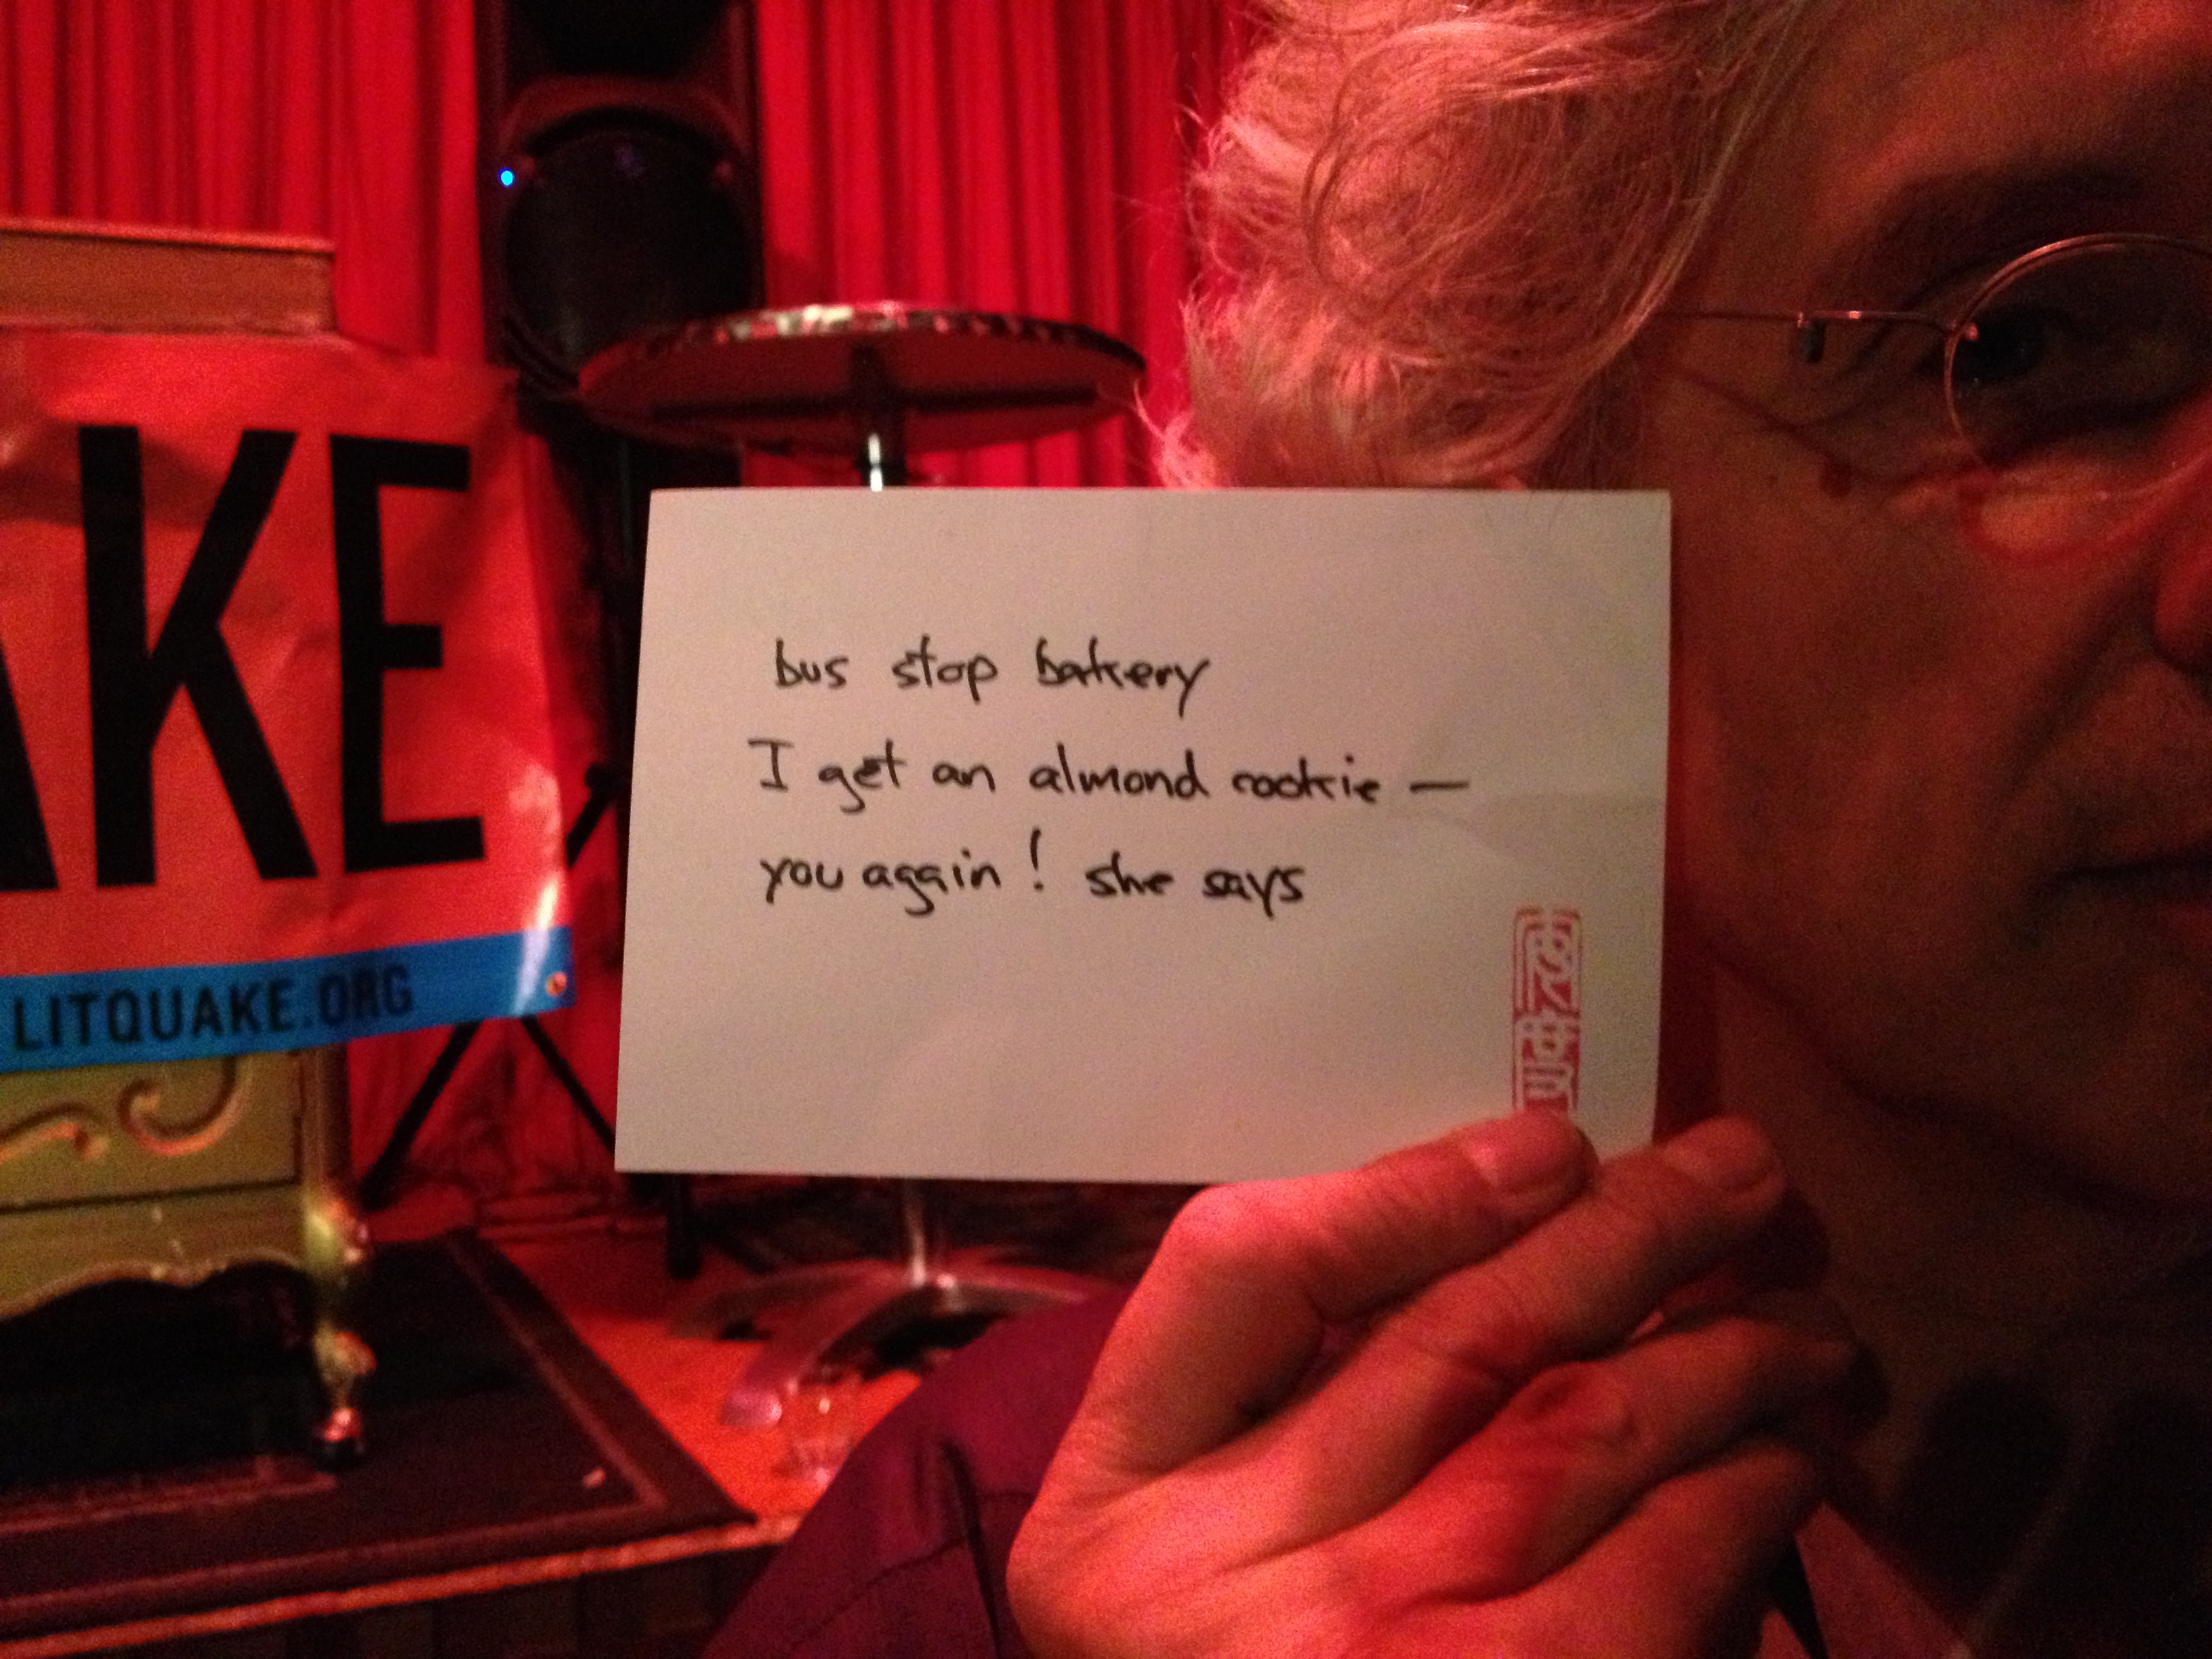 AKE
LITQUAKE.ORG
bus stop bakery
I get an almond cookie —
you again! she says